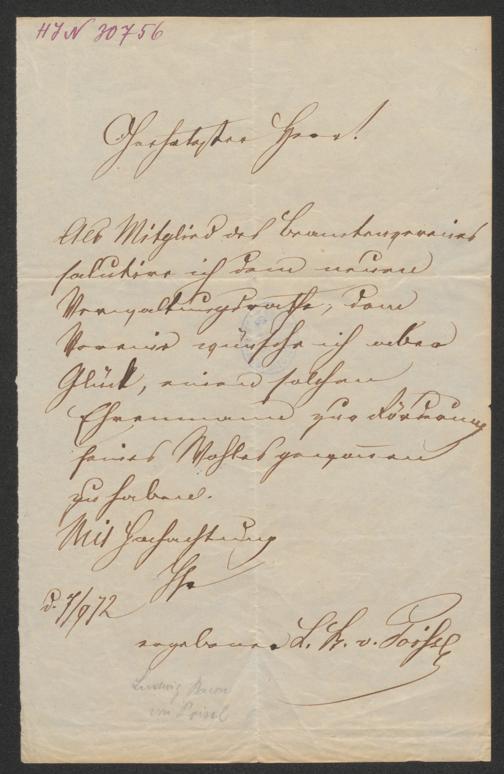 HIN 30756
Verehrtester Herr!
Als Mitglied des Beamtenvereines
salutire ich dem neuen
Verwaltungsrathe, dem
Verein wünsche ich aber
Glück, einen solchen
Ehrenmann zur Förderung
seines Wohles gewonnen
zu haben.
Mit Hochachtung
Ihr
d. 7/9 72
ergebener L. B. v. Poißl
Ludwig Baron
von Poissl